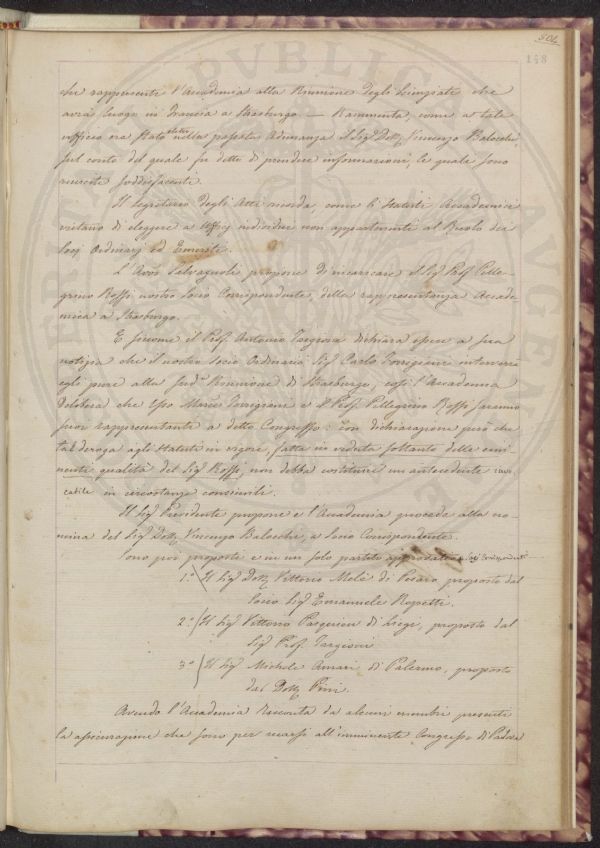 504
148
che rappresenti l'Accademia alla Riunione degli Scienziati che
avrà luogo in Francia a Strasburgo — Rammenta, come a tale
ufficio era stato eletto nella passata Adunanza il Sig.r Dott. Vincenzo Balocchi,
sul conto del quale fu detto di prendere informazioni, le quali sono
riuscite soddisfacenti.
Il Segretario degli Atti ricorda, come li Statuti Accademici
vietano di eleggere a Uffizj individui non appartenenti al Ruolo dei
Socj Ordinarj ed Emeriti.
L'Avv. Salvagnoli propone di incaricare il Sig. Prof. Pelle-
grino Rossi nostro Socio Corrispondente, della rappresentanza Accade-
mica a Strasburgo.
E siccome il Prof. Antonio Targioni dichiara essere a sua
notizia che il nostro Socio Ordinario Sig. Carlo Torrigiani interverrà
egli pure alla sud.a Riunione di Strasburgo, così l'Accademia
delibera che esso March. Torrigiani e il Prof. Pellegrino Rossi saranno
suoi rappresentanti a detto Congresso: con dichiarazione però che
tal deroga agli Statuti in vigore, fatta in veduta soltanto delle emi-
nenti qualità del Sig. Rossi, non debba costituire un antecedente
in circostanze consimili.
Il Sig. Presidente propone e l'Accademia procede alla no-
mina del Sig. Dott. Vincenzo Balocchi, a Socio Corrispondente.
Sono poi proposti e in un solo partito approvati a Socj Corrispondenti
1.o Il Sig. Dott. Vittorio Meli di Pesaro, proposto dal
Socio Sig. Emanuele Repetti.
2.o Il Sig. Vittorio Pasquier di Liegi, proposto dal
Sig. Prof. Targioni
3.o Il Sig. Michele Amari di Palermo, proposto
dal Dott. Pini.
Avendo l'Accademia riscontrata da alcuni membri presenti
la assicurazione che sono per recarsi all'imminente Congresso di Padova